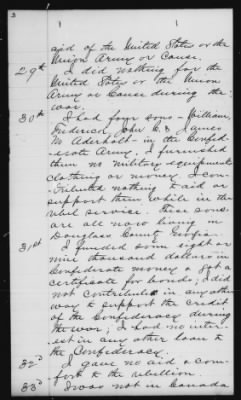 aid of the United States or the
Union Army or Cause.
29th I did nothing for the
United States or the Union
Army or Cause during the
war.
30th I had four sons - William,
Frederick, John C. & James
M. Aderholt - in the Confed-
erate Army. I furnished
them no military equipments
clothing or money. I con-
tributed nothing to aid or
support them while in the
rebel service. These sons
are all now living in
Douglass County Georgia.
31st I funded some eight or
nine thousand dollars in
Confederate money & got a
certificate for bonds; I did
not contribute in any other
way to support the credit
of the Confederacy during
the war; I had no inter-
est in any other loan to
the Confederacy.
32d I gave no aid & com-
fort to the rebellion.
33d I was not in Canada